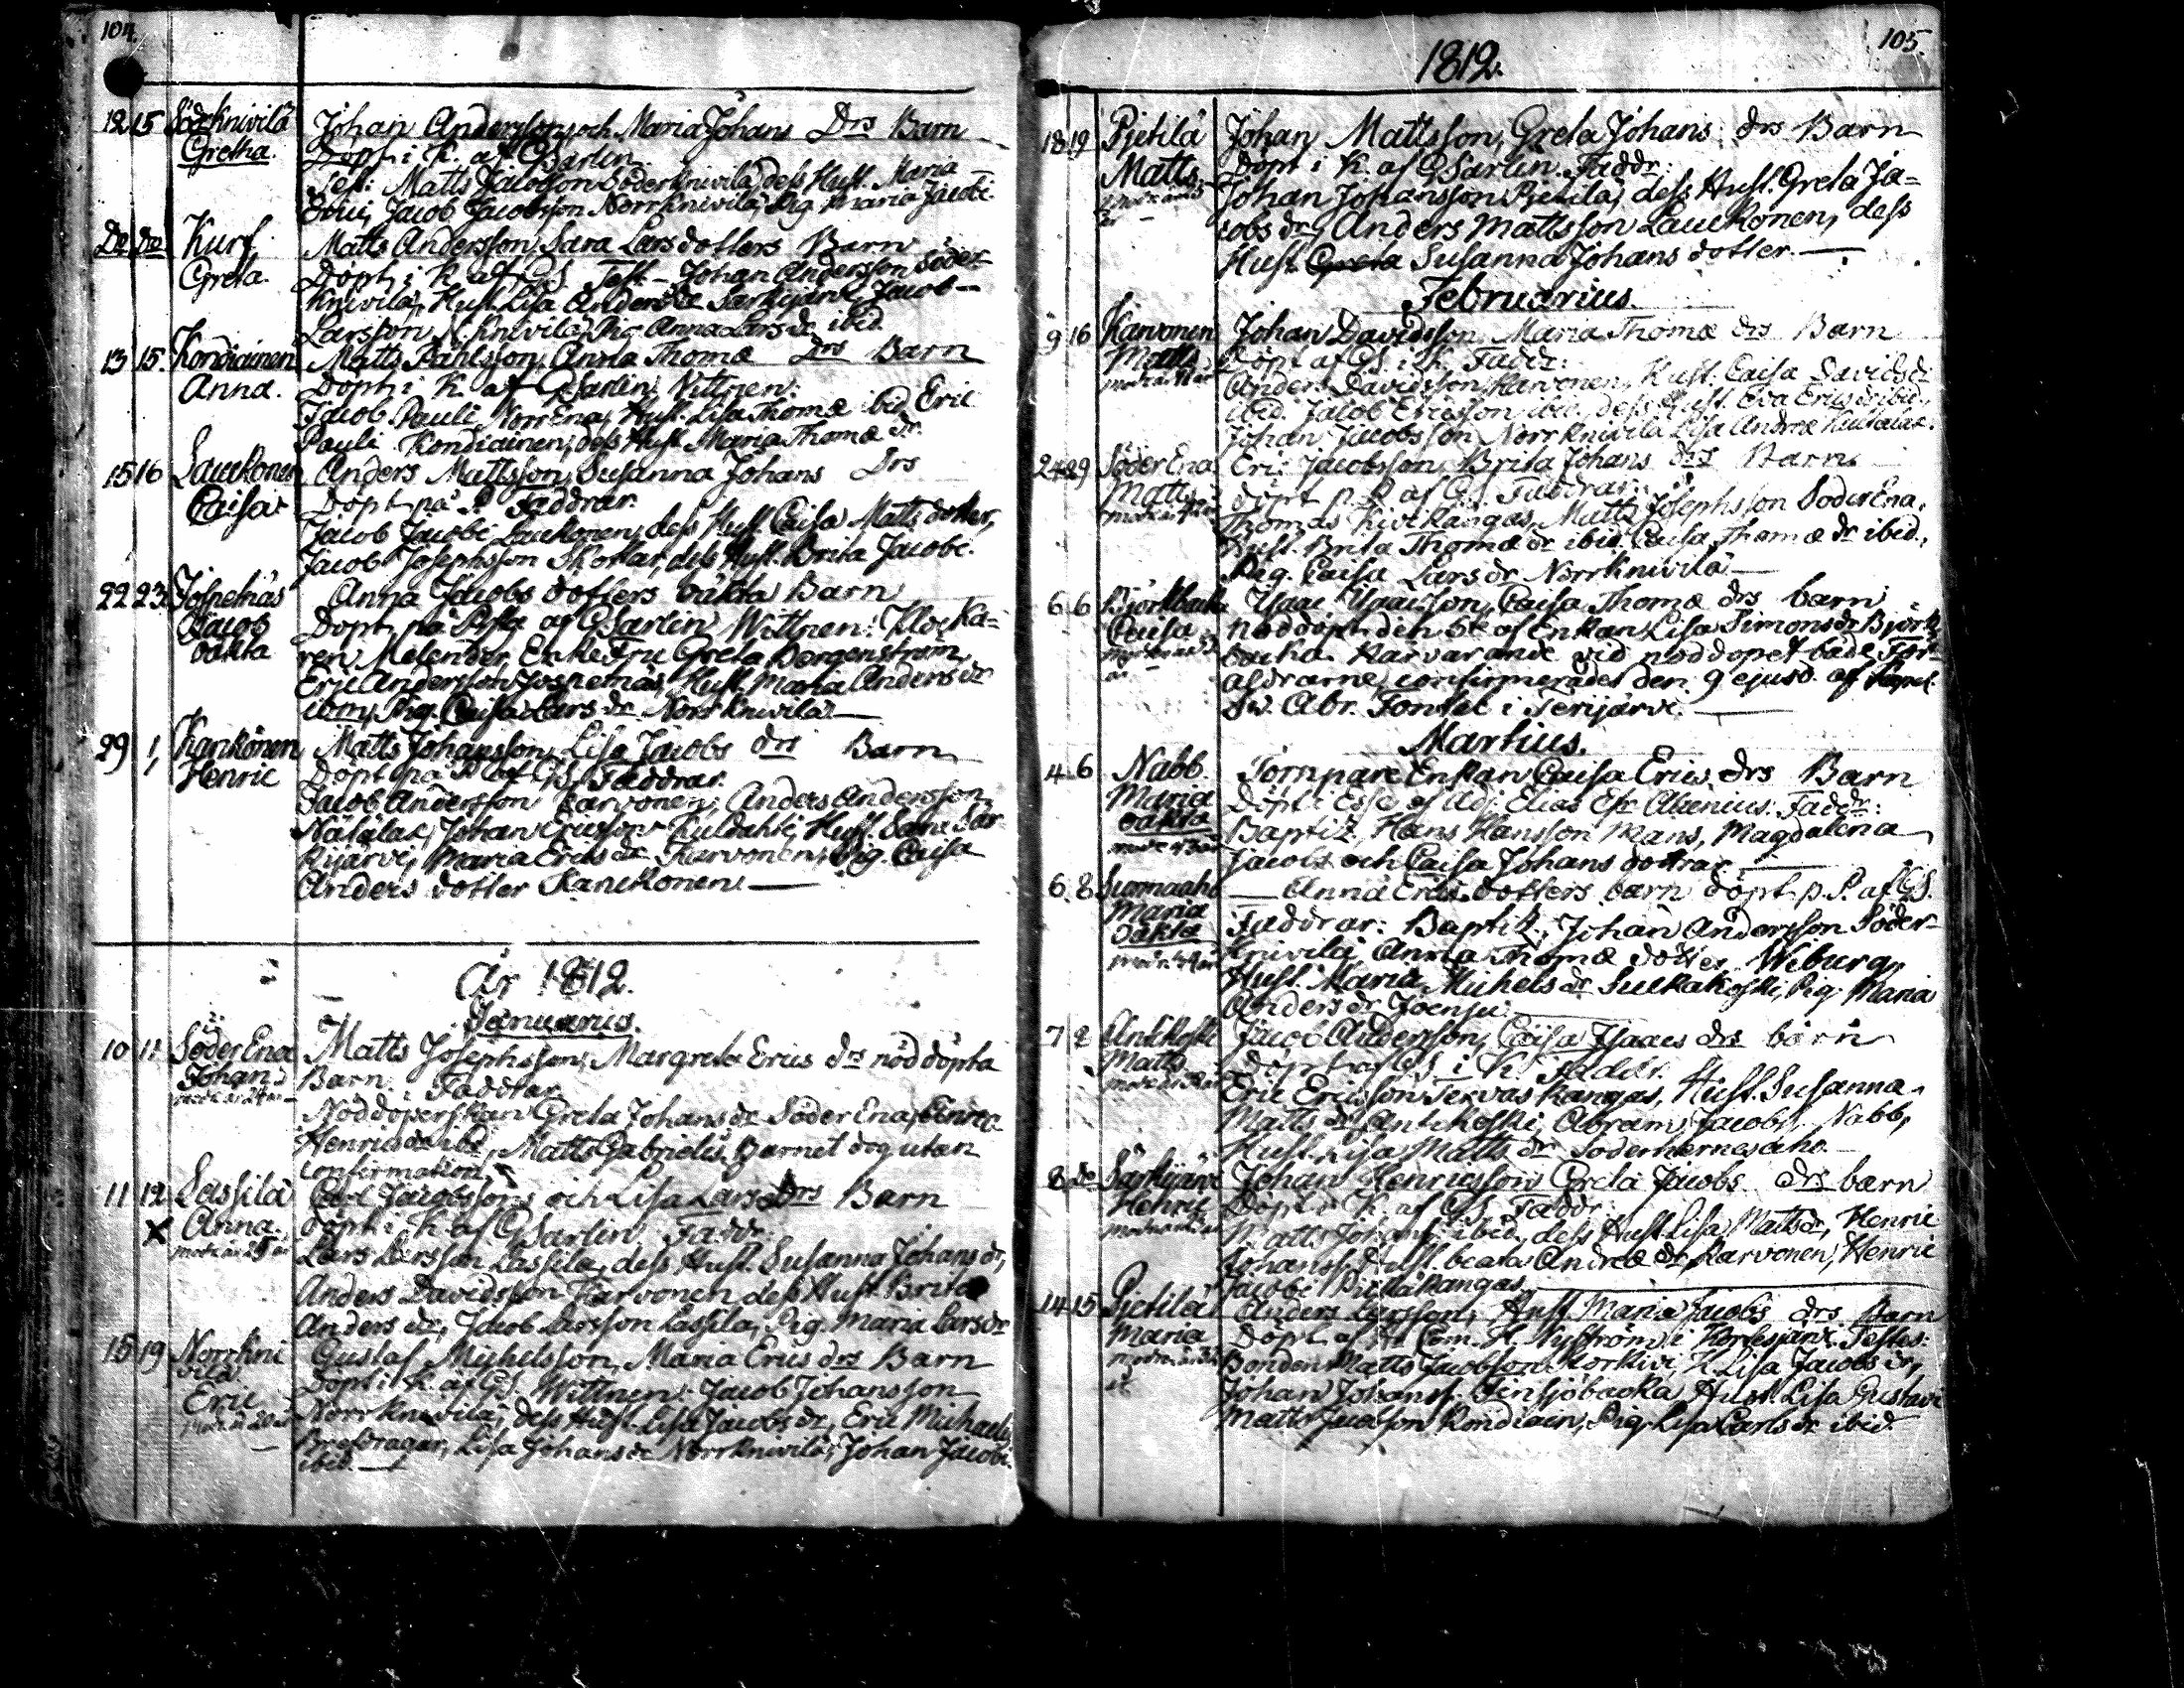 104.
12 15 Söderknivilä Johan Andersson och Maria Johans Drs Barn
Gretha. Döpt i K. af GSarlin
Test: Matts Jacobsson Söderknivilä, dess Hust. Maria
Erici, Jacob Jacobsson Norrknivilä, Pig Maria Jacobi
Do Do Kurf Matts Andersson, Sara Larsdotters Barn
Greta. Döpt i K. af GS Test - Johan Andersson Söder
knivilä, Hust. Lisa Anders dr Särkijärvi, Jacob
Larsson N. Knivilä, Pig Anna Lars dr ibid.
13 15. Kondiainen Matts Påhlsson, Anna Thomæ Drs Barn
Anna. Döpt i K. af GSarlin. Vittnen:
Jacob Pauli Norrena, Hust. Lisa Thomæ ibid, Eric
Pauli Kondiainen, dess Hust. Maria Thomæ dr.
15 16 Lauckonen Anders Mattsson, Susanna Johans Drs
Caisa Döpt på P. Faddrar.
Jacob Jacobi Lauckonen, dess Hust. Caisa Matts dotter,
Jacob Josephsson Skottar, dess Hust. Brita Jacobi.
22 23. Jospelnäs Anna Jacobs dotters oäkta Barn
Jacob Döpt på af GSarlin Wittnen: Klocka=
oäkta ren Melender, Enke Fru Greta Borgenström,
Eric Andersson Jospelnäs, Hust. Maria Anders dr
Pig. Caisa Lars dr Norr Knivilä
29 1 Kankonen Matts Johansson, Lisa Jacobs drs Barn
Henric Döpt på P. af GS. Faddrar.
Jacob Andersson Karvonen, Anders Andersson
Johan Ericsson Hust. Sara Sär
kijärvi, Maria Erics dr Karvonen, Pig. Caisa
Anders dotter Kanckonen
År 1812.
Januarius.
10 11 Söder Ena Matts Josephsson, Margreta Erics drs nöddöpta
Johan Barn. Faddrar
Nöddöperskan Greta Johans dr Söder Ena,
Henrics dr ibid, Matts Gabrielis. Barnet dog utan
confirmation.
11 12 Lassila Carl Jacobsson och Lisa Lars Drs Barn
Anna. Döpt i K. af GSarlin Faddr:
Lars Larsson Lassila, dess Hust. Susanna Johans dr,
Anders Davidsson Karvonen dess Hust. Brita
Anders dr, Jacob Larsson Lassila, Pig. Maria Lars dr
15 19 Norrkni Gustaf Michelsson, Maria Erics drs Barn
vilä Döpt i K. af GS. Wittnen: Jacob Johansson
Eric Norrknivilä, dess Hust. Lisa Jacobs dr, Eric Michaelis
Brefdragar, Lisa Johans dr Norrknivilä, Johan Jacobi
ibid.
1812.
105.
18 19 Pjetilä Johan Mattsson, Greta Johans drs Barn
Matts Döpt i K. af GSarlin. Faddr:
Johan Johansson Pjetilä, dess Hust. Greta Ja=
cobs dr, Anders Mattsson Lauckonen, dess
Hust. Greta Susanna Johans dotter.
Februarius.
9 16 Karvonen Johan Davidsson, Maria Thomæ drs Barn
Matts Döpt af GS. i K. Faddr:
Anders Davidsson Karvonen, Hust. Caisa Davids dr
ibid. Jacob Ericsson ibid, dess Hust. Eva Erics dr ibid,
Johan Jacobsson Norrknivilä, Lisa Andræ
24 29 Söder Ena Eric Jacobsson, Brita Johans drs Barn
Matts döpt p. P. af GS. Faddrar:
Thomas Kivikangas, Matts Josephsson Söder Ena,
Hust. Brita Thomæ dr ibid, Caisa Thomæ dr ibid,
Pig. Caisa Lars dr Norrknivilä
6 6 Björkbacka Isaac Isaacsson, Caisa Thomæ drs barn
Caisa nöddöpt den 6te af Enkan Lisa Simons dr Björk
backa. Närvarande vid nöddopet både För=
äldrarne, confirmerades den 9 ejusd. af
Abr. Fontel i Terijärvi.
Martius.
4 6 Nabb Tornpare Enkan Caisa Erics drs Barn
Maria Döpt i Esse af Adj. Elias Alcenius. Faddr:
oäkta Baptiz. Hans Hansson Mans, Magdalena
Jacobs och Caisa Johans dottrar.
6 8 Suomaaho Anna Erics dotters barn döpt p. P. af GS.
Maria Faddrar: Baptiz. Johan Andersson Söder-
oäkta Knivilä, Anna Thomæ dotter Wiburg,
Hust. Maria Michels dr Sulkakoski, Pig. Maria
Anders dr Joensu
7 8 Antikoski Jacob Andersson, Caisa Isaacs drs barn
Matts Döpt af GS. i K. Faddr.
Eric Ericsson Tervaskangas, Hust. Susanna
Matts dr Antikoski, Abram Jacobs. Nabb,
Hust. Lisa Matts dr
8 do Särkijärvi Johan Henricsson, Greta Jacobs drs barn
Henric Döpt i K. af GS. Faddr:
Matts Johanss. ibid, dess Hust. Lisa Matts dr, Henric
Johanss. Hust. beata Andræ dr, Karvonen, Henric
Jacobi Pjetiläkangas
14 15 Pjetilä Anders Larsson, Hust. Maria Jacobs drs Barn
Maria Döpt af Nyström i Kortesjärvi Testes:
Bonden Matts Jacobsson Korkivi, H. Lisa Jacobs dr,
Johan Johanss. Hust. Lisa Gustavi
Matts Jacobsson Kondiain, Pig. Lisa Carls dr ibid.